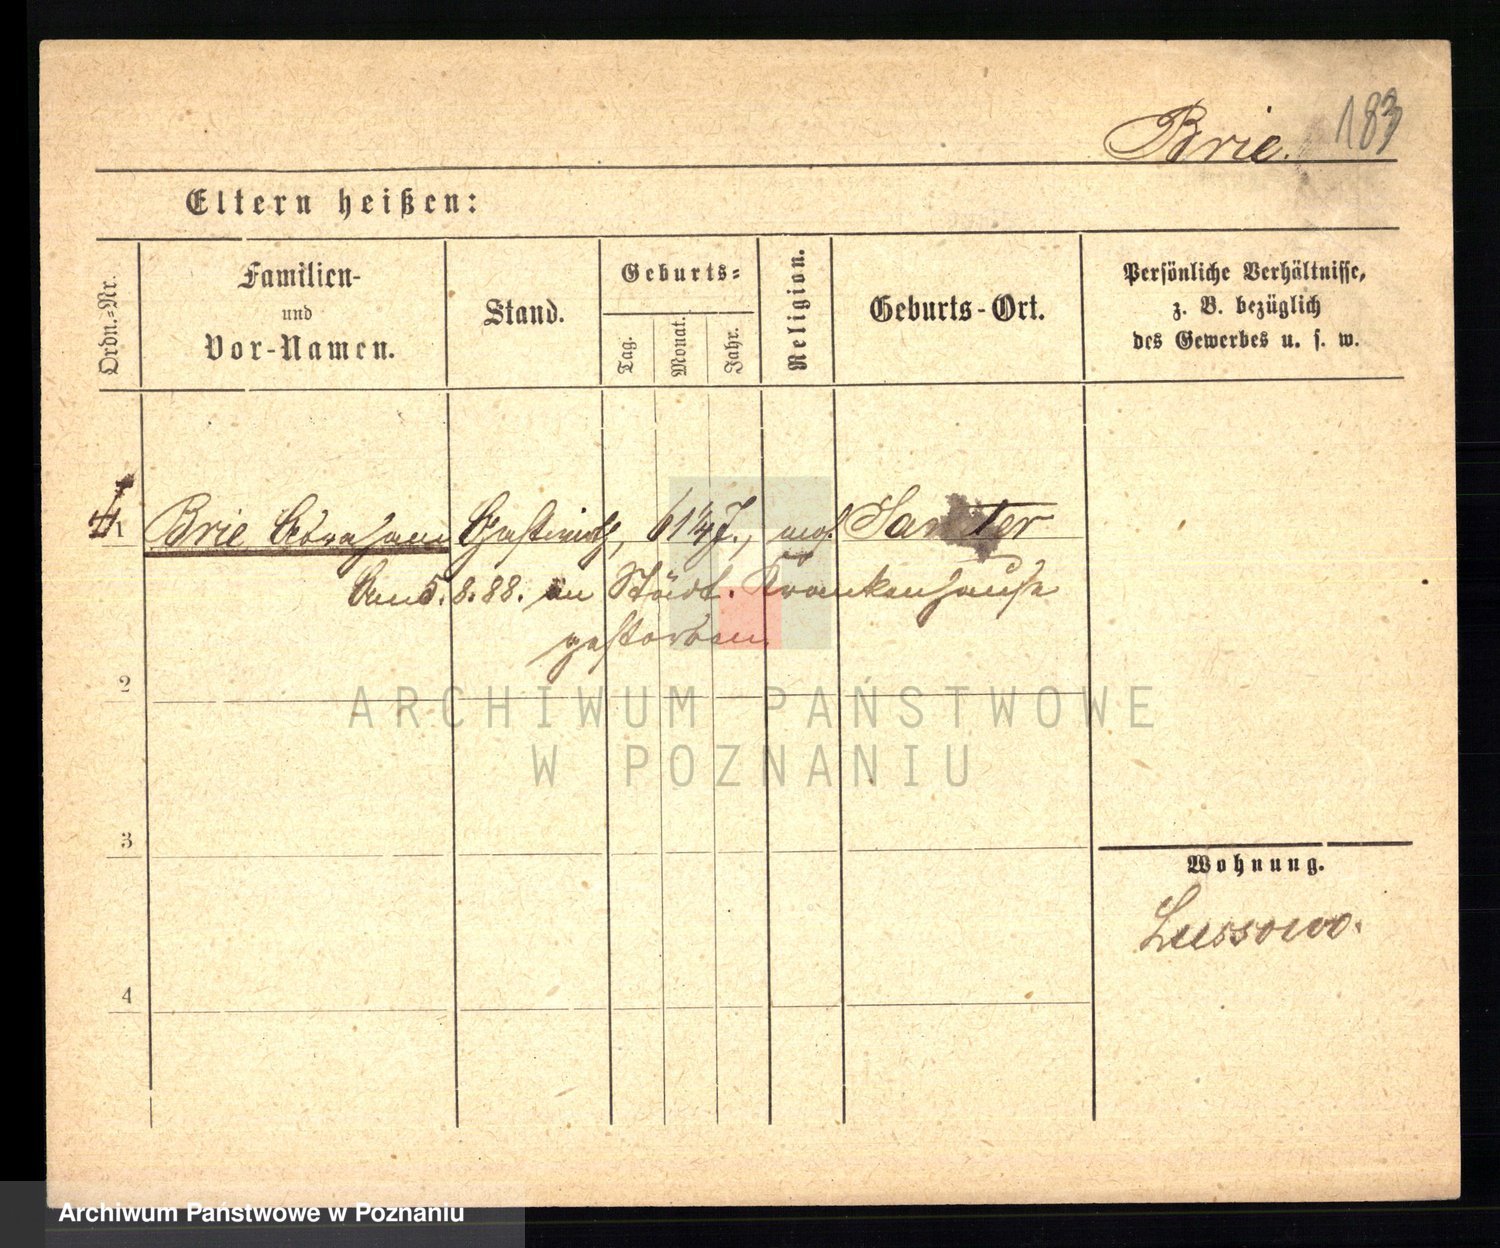 Brie. 183
Eltern heißen:
Ordn.-Nr.
Familien-
und
Vor-Namen.
Stand.
Geburts-
Tag.
Monat.
Jahr.
Religion.
Geburts-Ort.
Persönliche Verhältnisse,
z. B. bezüglich
des Gewerbes u. s. w.
1 Brie Abraham Gastwirth, 61 ¼ J., mos. Samter
Am 5.8.88. im Städt. Krankenhause
gestorben.
2
3
4
Wohnung.
Lussowo.
ARCHIWUM PAŃSTWOWE
W POZNANIU
Archiwum Państwowe w Poznaniu